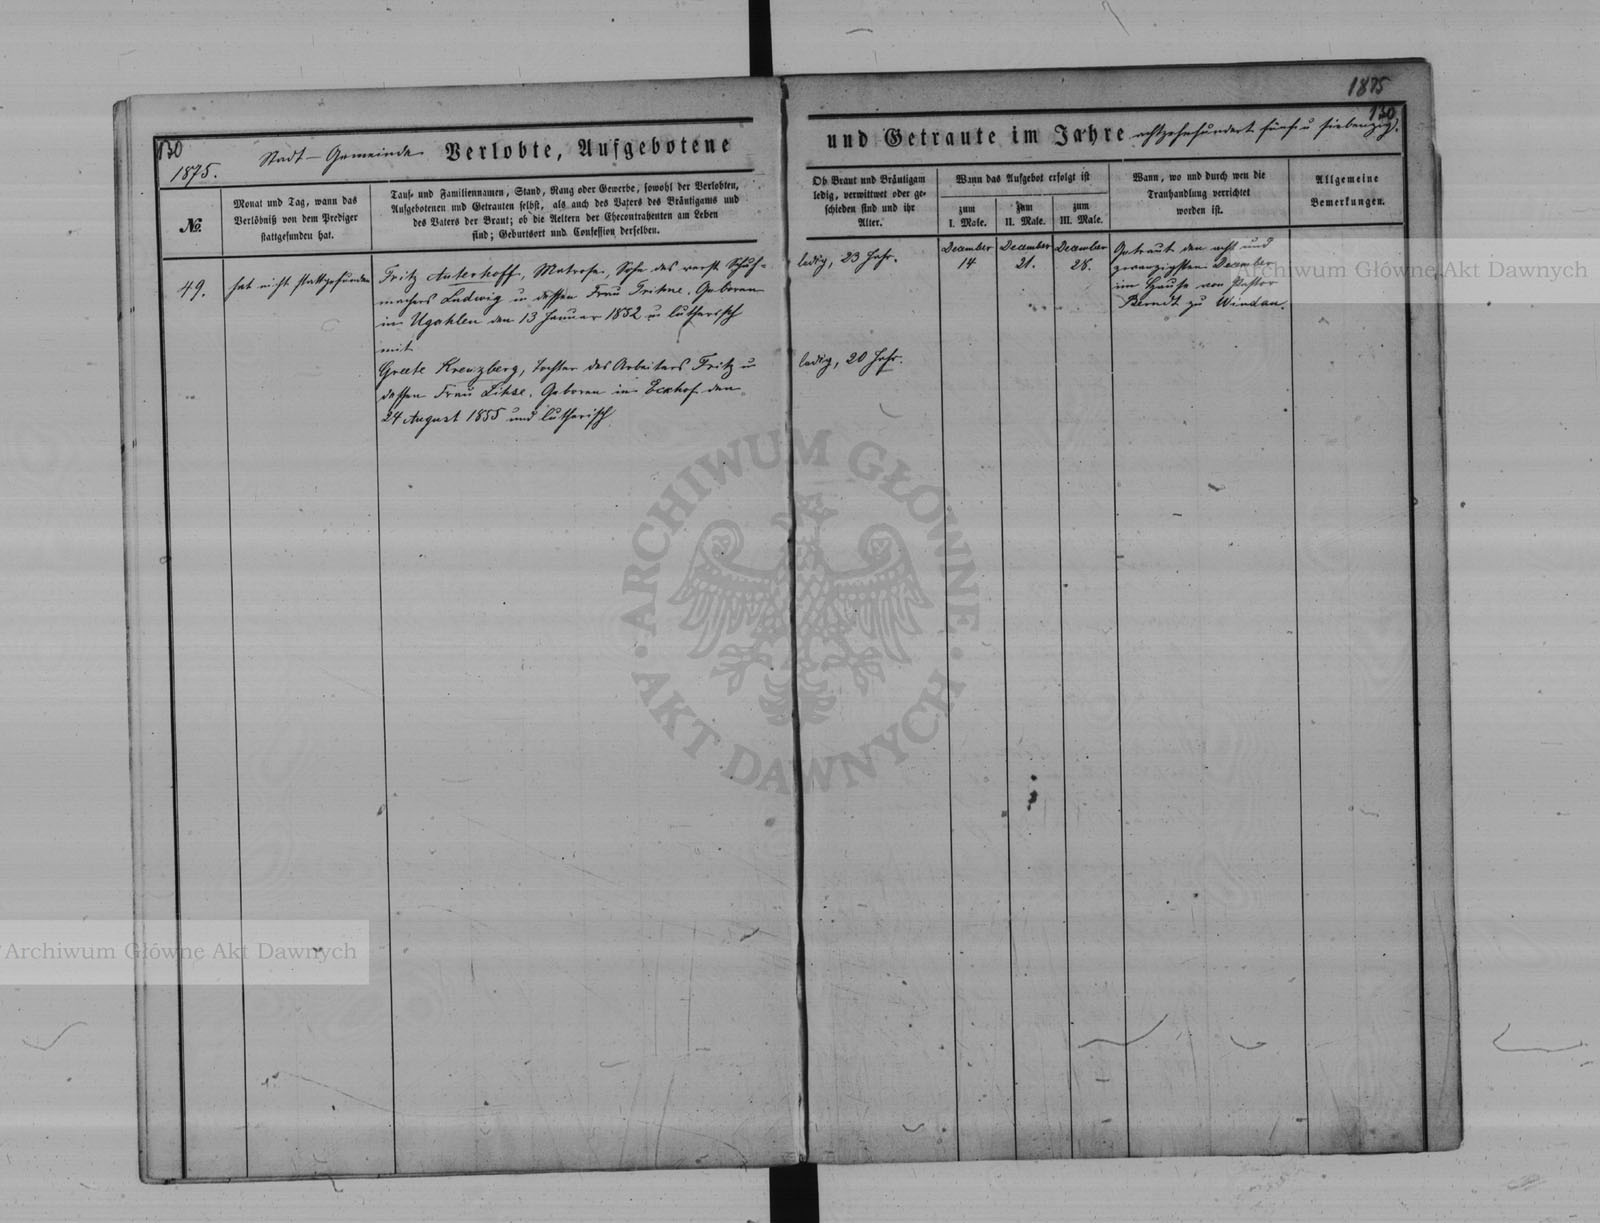 1875
130
130
1875.
Stadt-Gemeinde Verlobte, Aufgebotene
und Getraute im Jahre achtzehnhundert fünf u siebenzig.
№
Monat und Tag, wann das
Verlöbniß von dem Prediger
stattgefunden hat.
Tauf- und Familiennamen, Stand, Rang oder Gewerbe, sowohl der Verlobten,
Aufgebotenen und Getrauten selbst, als auch des Vaters des Bräutigams und
des Vaters der Braut; ob die Aeltern der Ehecontrahenten am Leben
sind; Geburtsort und Confession derselben.
Ob Braut und Bräutigam
ledig, verwittwet oder ge-
schieden sind und ihr
Alter.
Wann das Aufgebot erfolgt ist
zum
I. Male.
zum
II. Male.
zum
III. Male.
Wann, wo und durch wen die
Trauhandlung verrichtet
worden ist.
Allgemeine
Bemerkungen.
49.
hat nicht stattgefunden
Fritz Ansterhoff, Matrose, Sohn des verst. Schuh-
machers Ludwig u dessen Frau Trihne. Geboren
in Ugahlen den 13 Januar 1852 u lutherisch
mit
Greete Kreuzberg, Tochter des Arbeiters Fritz u
dessen Frau Lihse. Geboren in Leckhof den
24 August 1855 und lutherisch.
ledig, 23 Jahr.
ledig, 20 Jahr.
December
14
December
21.
December
28.
Getraut den acht und
zwanzigsten December
im Hause von Pastor
Berndt zu Windau.
Archiwum Główne Akt Dawnych
ARCHIWUM GŁÓWNE
AKT DAWNYCH
Archiwum Główne Akt Dawnych